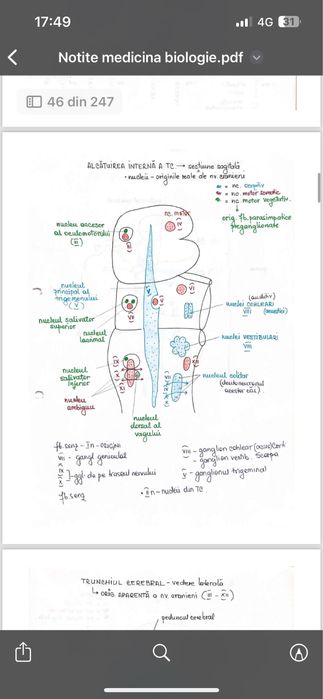 17:49
4G 31
Notite medicina biologie.pdf
46 din 247
ALCĂTUIREA INTERNĂ A TC → secțiune sagitală
• nucleii - originile reale de nv. cranieni
= nc. senzitiv
= nc. motor somatic
= nc. motor vegetativ
orig. fb. parasimpatice
preganglionare
nc. motor
nucleu accesor
al oculomotorului
(III)
nucleul
principal al
trigemenului
(V)
nucleul salivator
superior
nucleul
lacrimal
nucleul
salivator
inferior
nucleu
ambiguu
nucleul
dorsal al
vagului
(auditiv)
nucleii COHLEARI
VIII (acustici)
nucleii VESTIBULARI
VIII
nucleul solitar
(deutoneuronul
fb. senz - în - originii
VII - gangl geniculat
IX
X
gg. de pe traseul nervului
fb. senz
VIII - ganglion cohlear (acustic) Corti
- ganglion vestib. Scarpa
V - ganglionul trigeminal
• în - nucleii din TC
TRUNCHIUL CEREBRAL - vedere laterală
↳ ORIG. APARENTĂ a nv. cranieni (III - XII)
peduncul cerebral